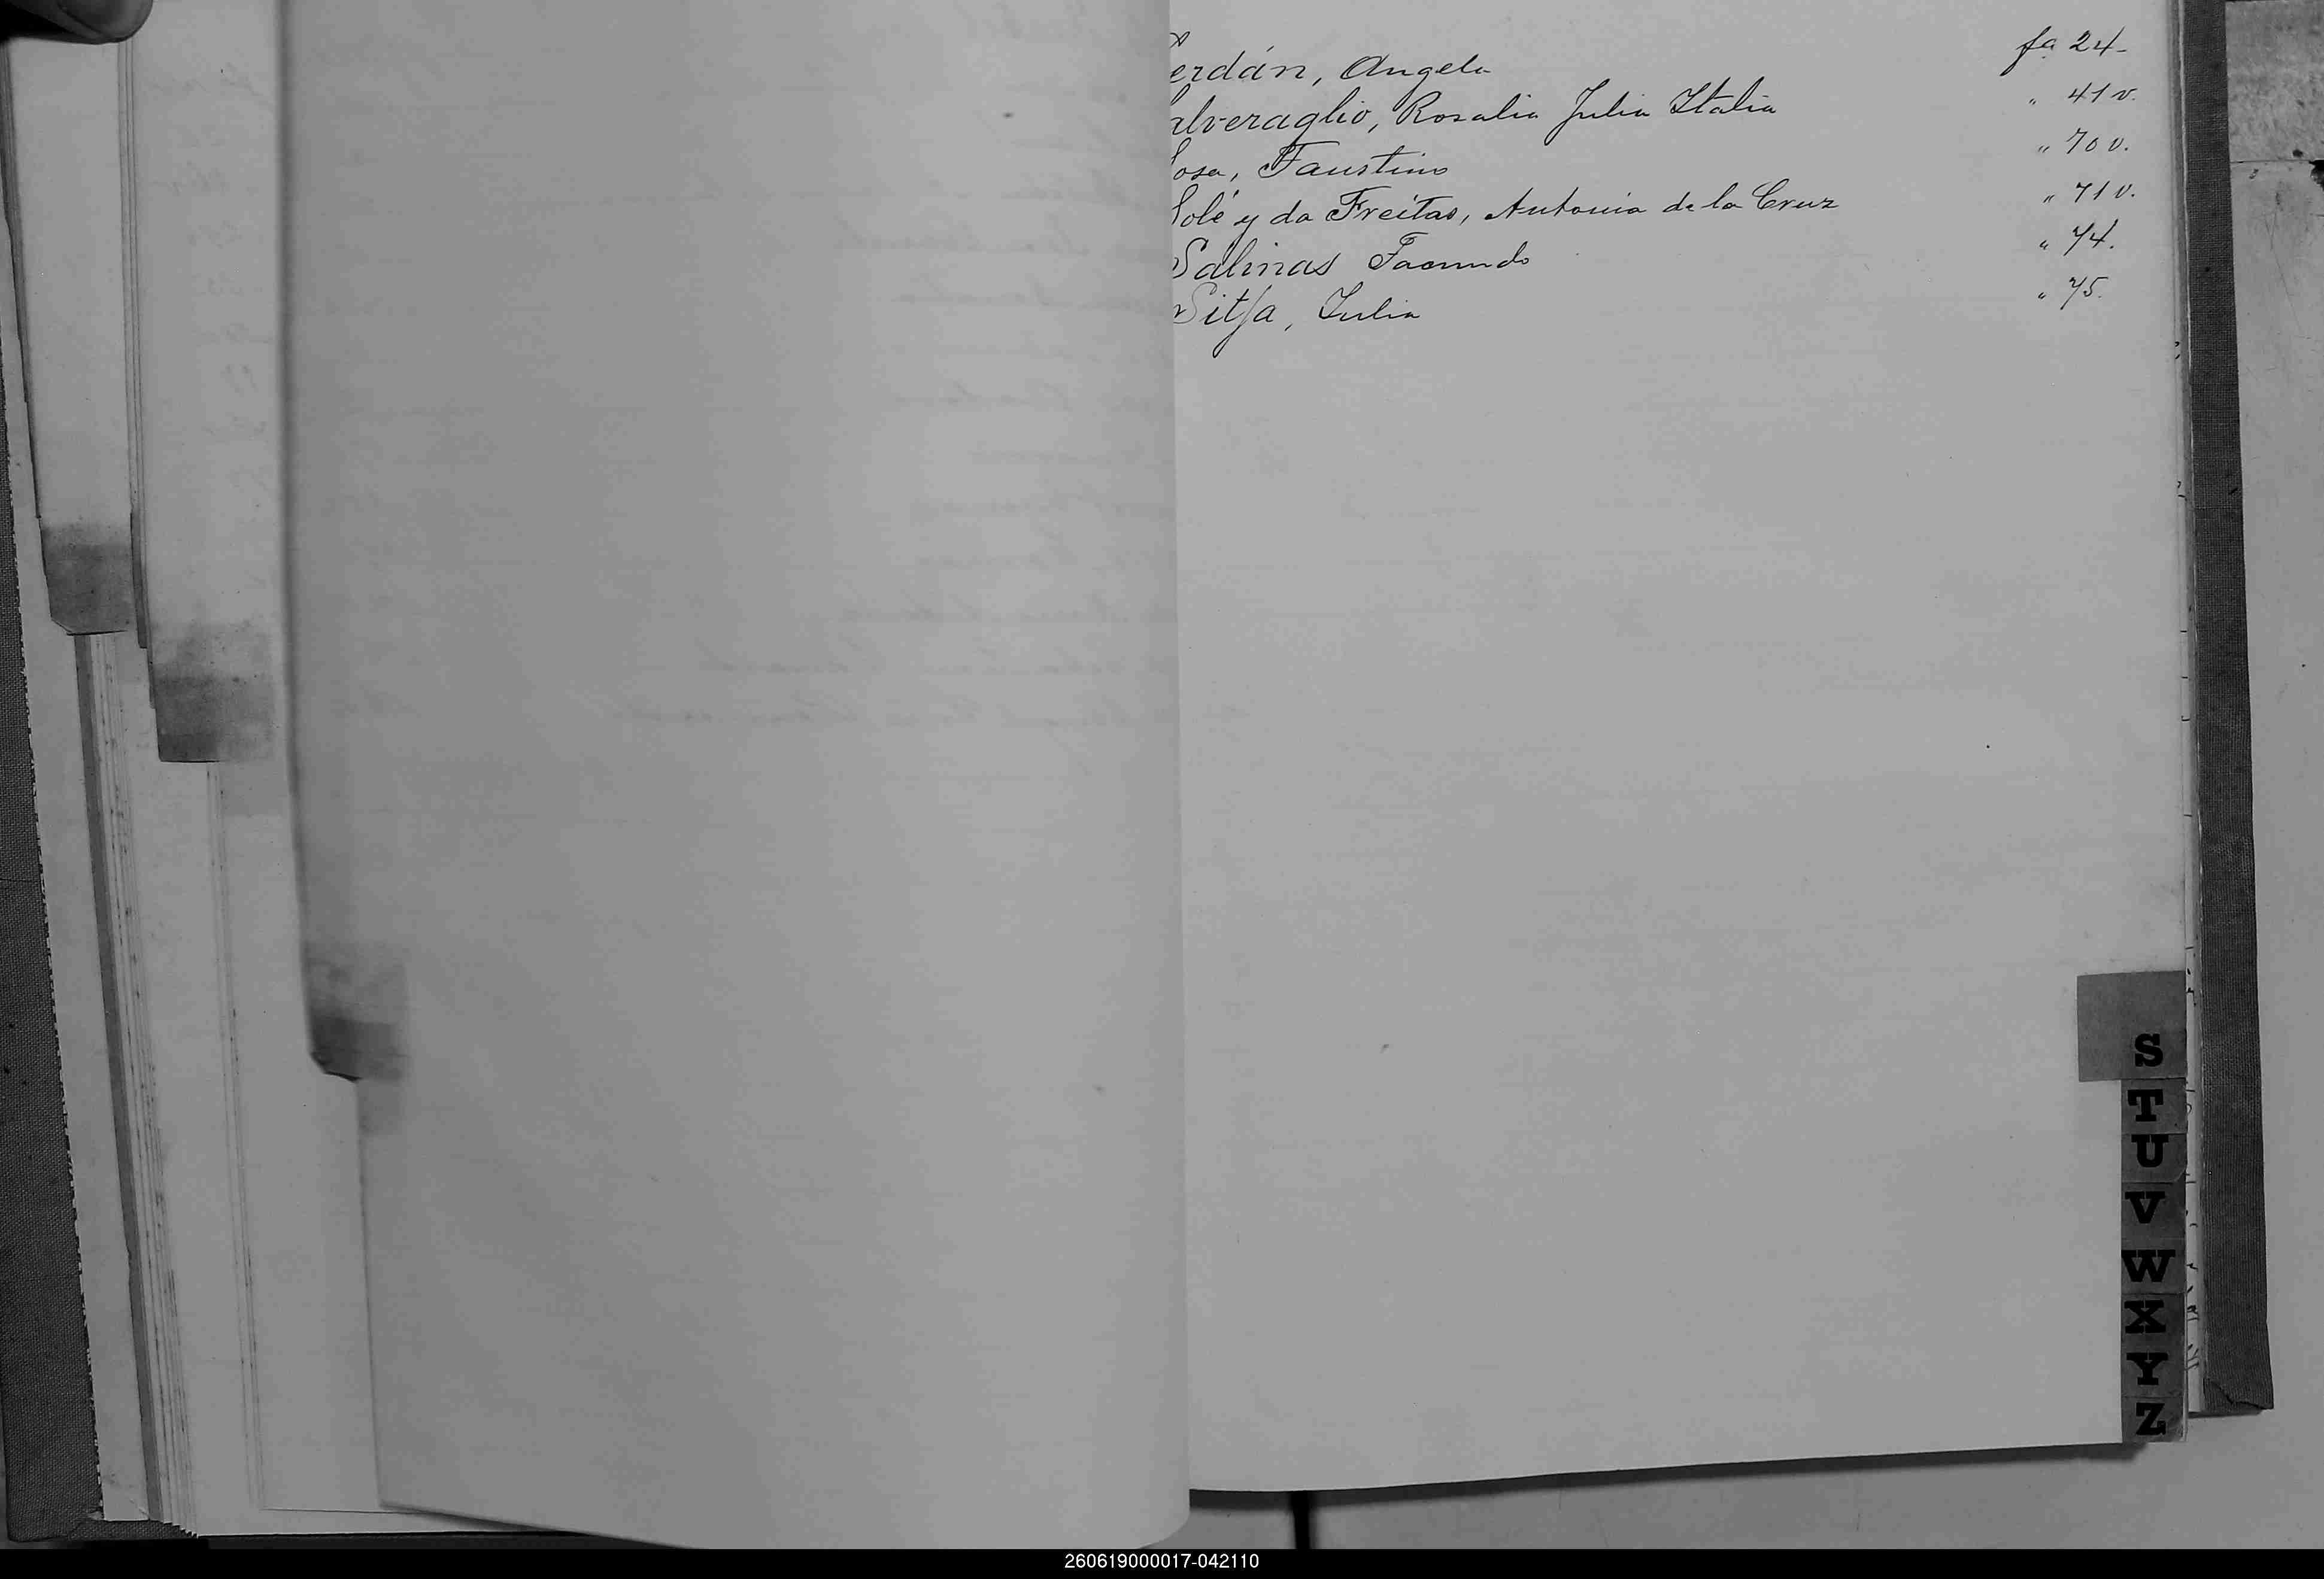 erdán, Angela fa 24-
alveraglio, Rosalia Julia Italia " 41 v.
osa, Faustino " 70 v.
Solé y da Freitas, Antonia de la Cruz " 71 v.
Salinas Facundo " 74.
Sitja, Julia " 75.
S
T
U
V
W
X
Y
Z
260619000017-042110